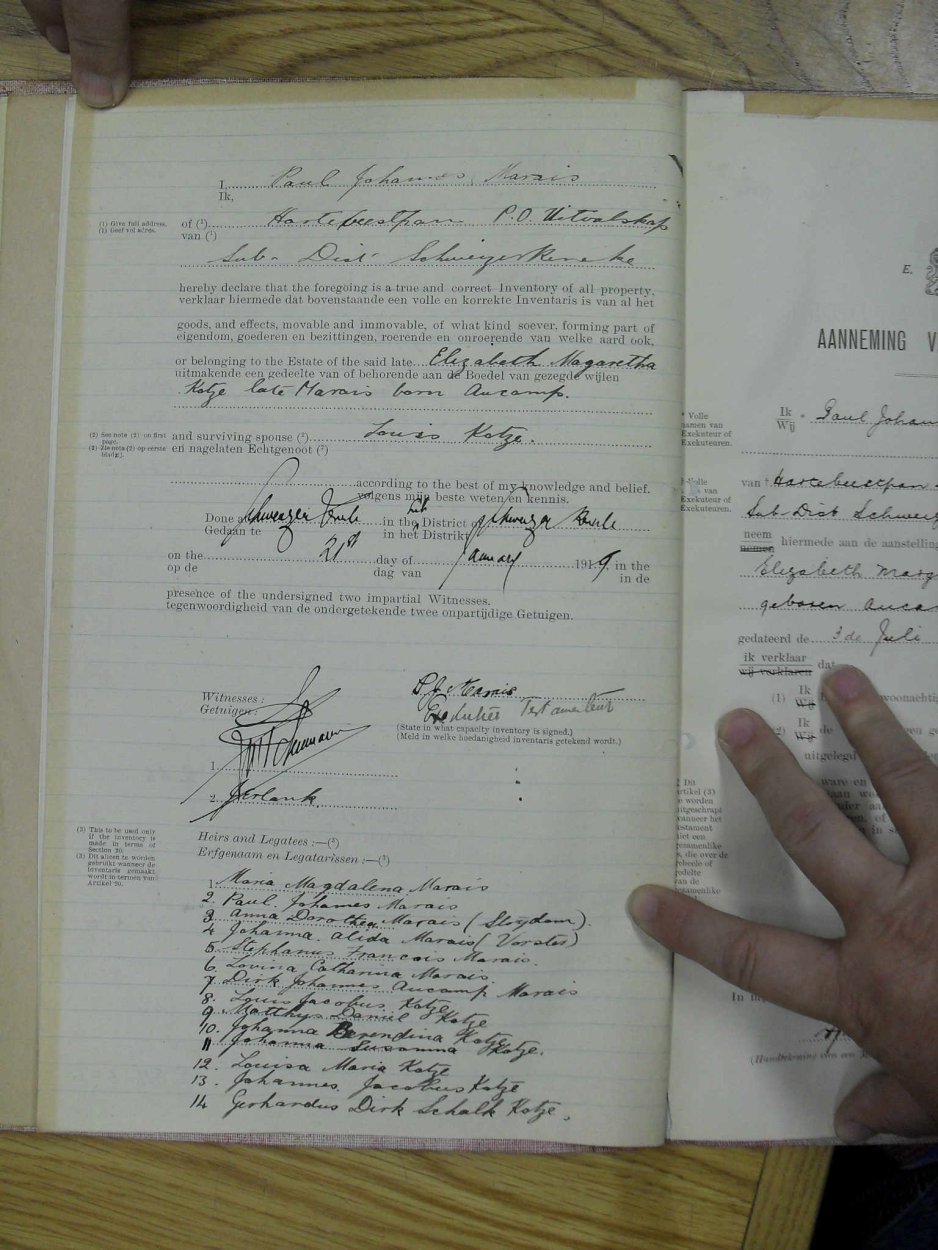 I, Paul Johannes Marais
Ik,
(1) Give full address.
(1) Geef vol adres.
of (1) Hartebeestpan P.O. Uitvalskop
van (1)
Sub- Dist- Schweizer Reneke
hereby declare that the foregoing is a true and correct Inventory of all property,
verklaar hiermede dat bovenstaande een volle en korrekte Inventaris is van al het
goods, and effects, movable and immovable, of what kind soever, forming part of
eigendom, goederen en bezittingen, roerende en onroerende van welke aard ook,
or belonging to the Estate of the said late Elizabeth Magaretha
uitmakende een gedeelte van of behorende aan de Boedel van gezegde wijlen
Kotze late Marais born Aucamp.
(2) See note (2) on first page.
(2) Zie nota (2) op eerste bladzij.
and surviving spouse (2) Louis Kotze.
en nagelaten Echtgenoot (2)
according to the best of my knowledge and belief.
volgens mijn beste weten en kennis.
Done at Schweizer Reneke in the District of Schweizer Reneke
Gedaan te in het Distrikt
on the 21st day of January 1919 in the
op de dag van in de
presence of the undersigned two impartial Witnesses.
tegenwoordigheid van de ondergetekende twee onpartijdige Getuigen.
Witnesses :
Getuigen :
P. J. Marais
Testamentair
(State in what capacity inventory is signed.)
(Meld in welke hoedanigheid inventaris getekend wordt.)
1.
2.
(3) This to be used only
if the inventory is
made in terms of
Section 20.
(3) Dit alleen te worden
gebruikt wanneer de
inventaris gemaakt
wordt in termen van
Artikel 20.
Heirs and Legatees :—(3)
Erfgenaam en Legatarissen :—(3)
1. Maria Magdalena Marais
2. Paul. Johannes Marais
3 Anna Dorothea Marais (Strydom).
4 Johanna. Alida Marais (Vorster)
5 Stephanus Francois Marais.
6. Lovina Catharina Marais
7 Dirk Johannes Aucamp Marais
8. Louis Jacobus Kotze
9 Matthys Daniel Kotze
10. Johanna Berendina Kotze
11 Johanna Susanna Kotze.
12. Louisa Maria Kotze
13. Johannes Jacobus Kotze
14 Gerhardus Dirk Schalk Kotze.
E.
AANNEMING V
* Volle
namen van
Exekuteur of
Exekuteuren.
Ik
Wij
Paul Johan
van Hartebeestpan
van
Exekuteur of
Exekuteuren.
Sub Dist Schweiz
neem
nemen
hiermede aan de aanstelling
Elizabeth Marg
geboren Auca
gedateerd de 3de Juli
ik verklaar
wij verklaren
dat
(1) Ik
Wij
woonachtig
Ik
Wij
uitgelegd